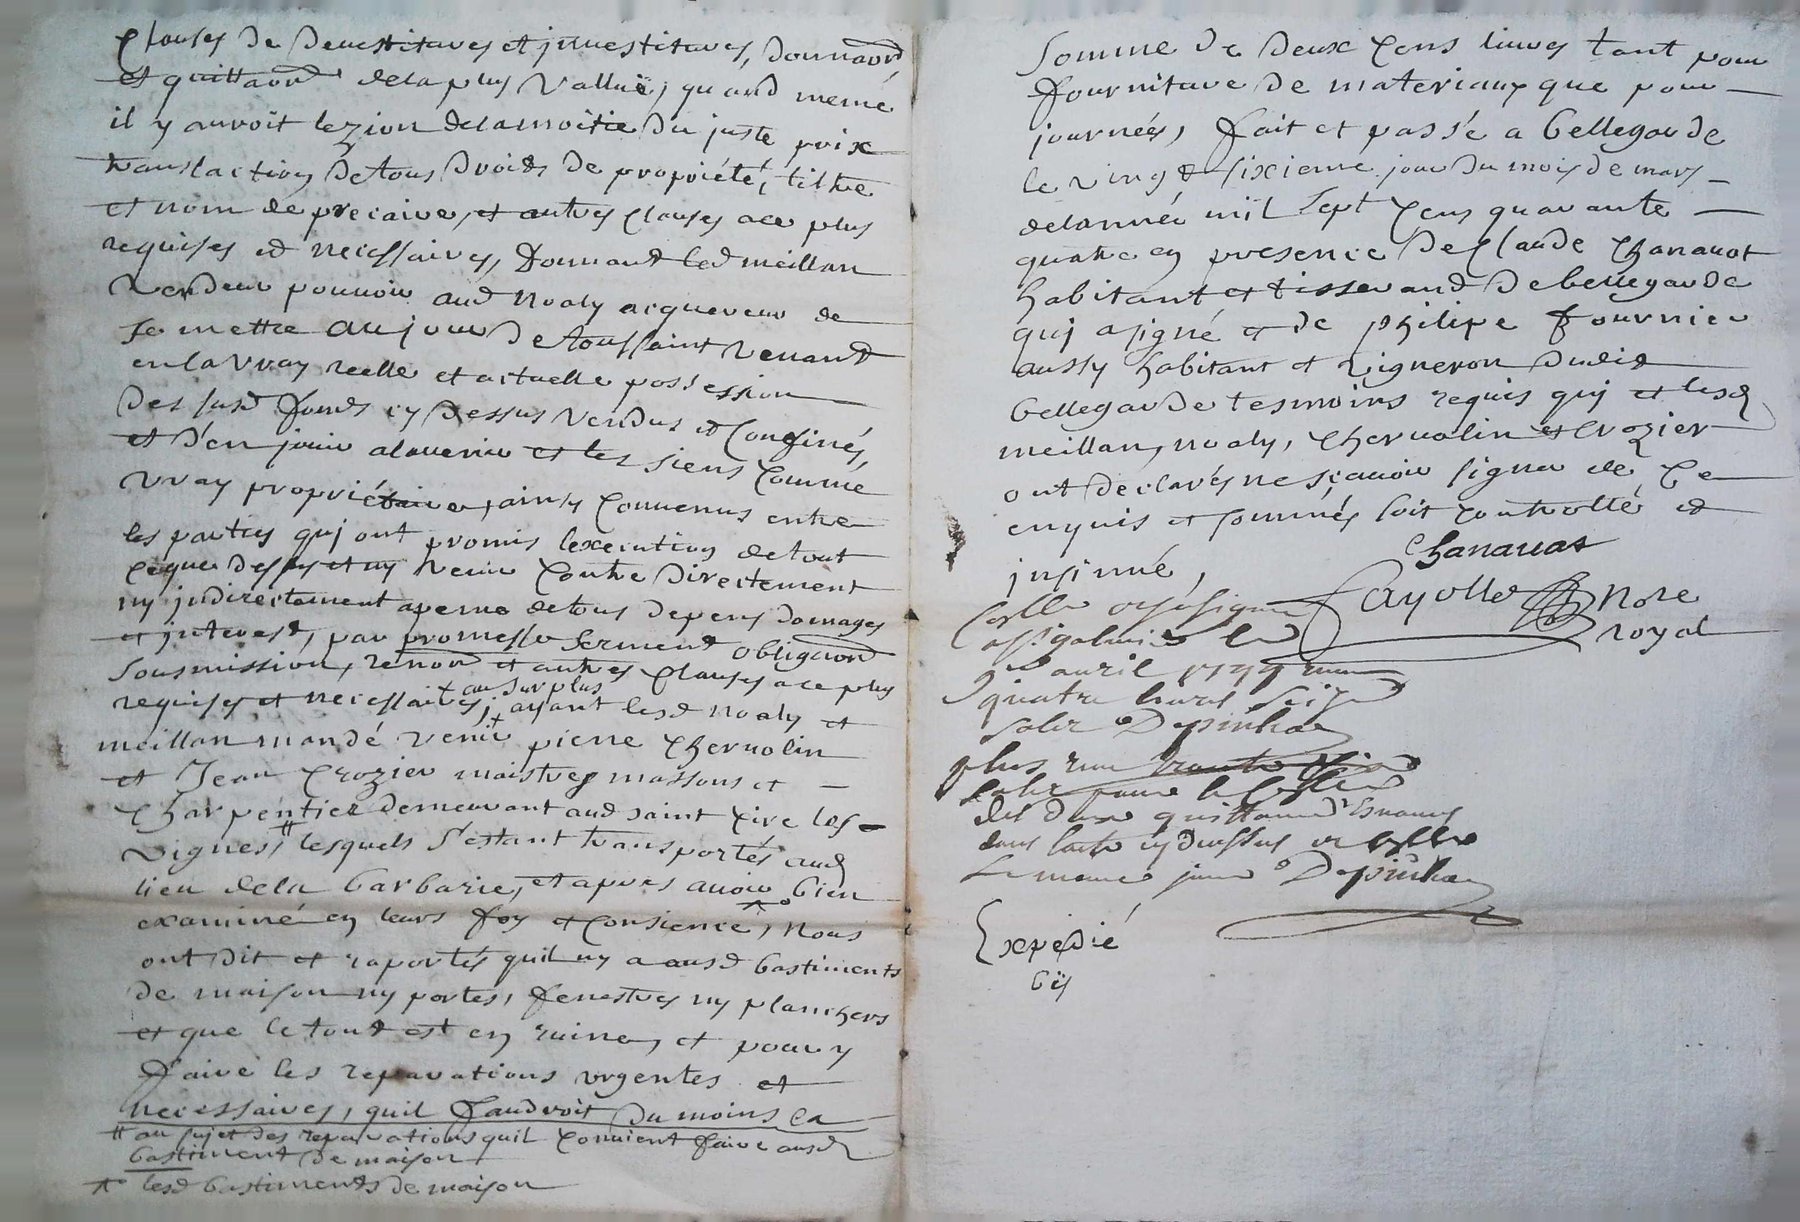 clauses de devestitures et investitures, donnaõn
et quittaõn dela plus vallue, quand meme
il y auroit lezion dela moitié du juste prix
translaction de tous droits de propriété, tiltre
et nom de precaire, et autres clauses a ce plus
requises et necessaires, donnant led meillan
vendeur pouvoir aud noaly acquereur de
se mettre au jour de toussaint venant
en la vray reelle et actuelle possession
des susd fonds cy dessus vendus et confinés
et d'en jouir alavenir et les siens comme
vray propriétaire, ainsy convenus entre
les parties qui ont promis lexecution de tout
ceque dessus et ny venir contre directement
ny indirectement a peine de tous depens domages
et interest, par promesse serment obligaõn
sousmission, renon et autres clauses a ce plus
requises et necessaires, + au surplus
ayant lesd noaly et
meillan mandé venir pierre chervolin
et Jean Crozier maistres massons et
charpentier demeurant aud saint cire les
vignes, # lesquels s'estant transportés aud
lieu dela barbarie, et apres avoir bien
examiné en leurs foy et consience, nous
ont dit et raportés quil ny a ausd bastiments
de maison ny portes, fenestres ny planchers
et que le tout est en ruine, et pour y
faire les reparations urgentes et
necessaires, quil faudroit du moins la
# au sujet des reparations quil convient faire ausd
bastiment de maison
lesd bastiments de maison
somme de deux cens livres tant pour
fourniture de materiaux que pour
journées, fait et passé a bellegarde
le vingt sixieme jour du mois de mars
delannée mil sept cens quarante
quatre en presence de claude Chanavat
habitant et tisserand de bellegarde
qui a signé et de philipe fournier
aussy habitant et vigneron dudit
bellegarde tesmoins requis qui et lesd
meillan, noaly, chervolin et Crozier
ont declarés ne sçavoir signer de ce
enquis et sommés soit controllé et
insinué,
Chanavat
Fayolle Nore
royal
Collé
avril 1744
quatre livres seize
sols Depinha
plus
des deux quittances
dans lacte cy dessus
le meme jour Depinha
Expedié
bis